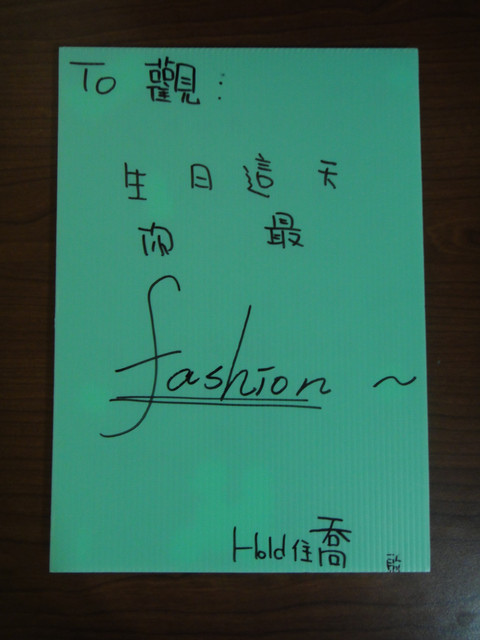 To 觀:
生日這天
你 最
fashion ~
Hold住喬 啟